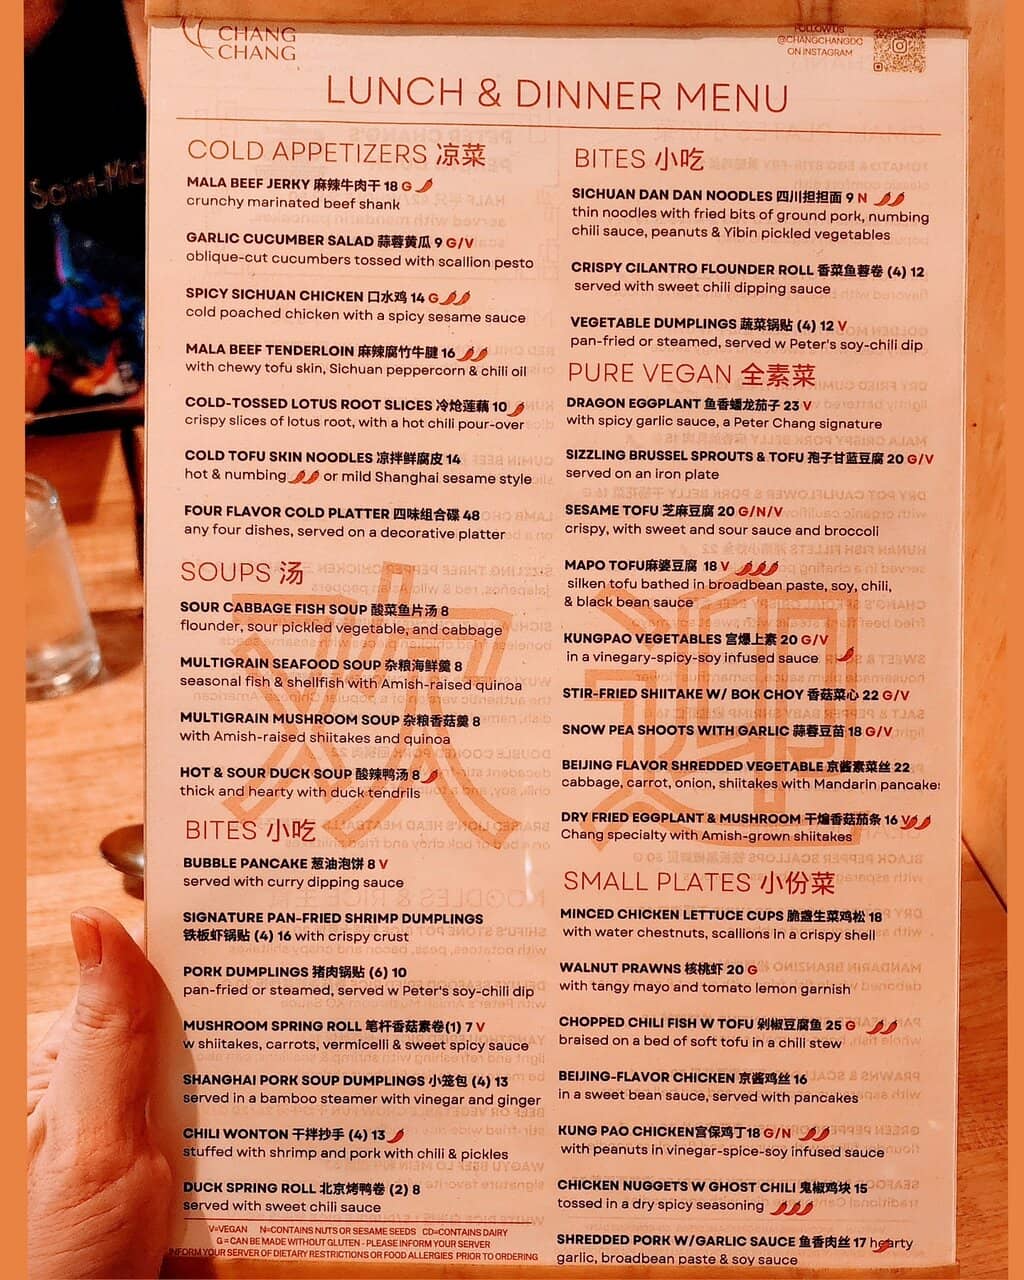 CHANG
CHANG
FOLLOW US
@CHANGCHANGDC
ON INSTAGRAM
LUNCH & DINNER MENU
COLD APPETIZERS 凉菜
MALA BEEF JERKY 麻辣牛肉干 18 G
crunchy marinated beef shank
GARLIC CUCUMBER SALAD 蒜蓉黄瓜 9 G/V
oblique-cut cucumbers tossed with scallion pesto
SPICY SICHUAN CHICKEN 口水鸡 14 G
cold poached chicken with a spicy sesame sauce
MALA BEEF TENDERLOIN 麻辣腐竹牛腱 16
with chewy tofu skin, Sichuan peppercorn & chili oil
COLD-TOSSED LOTUS ROOT SLICES 冷炝莲藕 10
crispy slices of lotus root, with a hot chili pour-over
COLD TOFU SKIN NOODLES 凉拌鲜腐皮 14
hot & numbing or mild Shanghai sesame style
FOUR FLAVOR COLD PLATTER 四味组合碟 48
any four dishes, served on a decorative platter
SOUPS 汤
SOUR CABBAGE FISH SOUP 酸菜鱼片汤 8
flounder, sour pickled vegetable, and cabbage
MULTIGRAIN SEAFOOD SOUP 杂粮海鲜羹 8
seasonal fish & shellfish with Amish-raised quinoa
MULTIGRAIN MUSHROOM SOUP 杂粮香菇羹 8
with Amish-raised shiitakes and quinoa
HOT & SOUR DUCK SOUP 酸辣鸭汤 8
thick and hearty with duck tendrils
BITES 小吃
BUBBLE PANCAKE 葱油泡饼 8 V
served with curry dipping sauce
SIGNATURE PAN-FRIED SHRIMP DUMPLINGS
铁板虾锅贴 (4) 16 with crispy crust
PORK DUMPLINGS 猪肉锅贴 (6) 10
pan-fried or steamed, served w Peter's soy-chili dip
MUSHROOM SPRING ROLL 笔杆香菇素卷(1) 7 V
w shiitakes, carrots, vermicelli & sweet spicy sauce
SHANGHAI PORK SOUP DUMPLINGS 小笼包 (4) 13
served in a bamboo steamer with vinegar and ginger
CHILI WONTON 干拌抄手 (4) 13
stuffed with shrimp and pork with chili & pickles
DUCK SPRING ROLL 北京烤鸭卷 (2) 8
served with sweet chili sauce
V=VEGAN N=CONTAINS NUTS OR SESAME SEEDS CD=CONTAINS DAIRY
G = CAN BE MADE WITHOUT GLUTEN - PLEASE INFORM YOUR SERVER
INFORM YOUR SERVER OF DIETARY RESTRICTIONS OR FOOD ALLERGIES PRIOR TO ORDERING
BITES 小吃
SICHUAN DAN DAN NOODLES 四川担担面 9 N
thin noodles with fried bits of ground pork, numbing
chili sauce, peanuts & Yibin pickled vegetables
CRISPY CILANTRO FLOUNDER ROLL 香菜鱼蓉卷 (4) 12
served with sweet chili dipping sauce
VEGETABLE DUMPLINGS 蔬菜锅贴 (4) 12 V
pan-fried or steamed, served w Peter's soy-chili dip
PURE VEGAN 全素菜
DRAGON EGGPLANT 鱼香蟠龙茄子 23 V
with spicy garlic sauce, a Peter Chang signature
SIZZLING BRUSSEL SPROUTS & TOFU 孢子甘蓝豆腐 20 G/V
served on an iron plate
SESAME TOFU 芝麻豆腐 20 G/N/V
crispy, with sweet and sour sauce and broccoli
MAPO TOFU麻婆豆腐 18 V
silken tofu bathed in broadbean paste, soy, chili,
& black bean sauce
KUNGPAO VEGETABLES 宫爆上素 20 G/V
in a vinegary-spicy-soy infused sauce
STIR-FRIED SHIITAKE W/ BOK CHOY 香菇菜心 22 G/V
SNOW PEA SHOOTS WITH GARLIC 蒜蓉豆苗 18 G/V
BEIJING FLAVOR SHREDDED VEGETABLE 京酱素菜丝 22
cabbage, carrot, onion, shiitakes with Mandarin pancakes
DRY FRIED EGGPLANT & MUSHROOM 干煸香菇茄条 16 V
Chang specialty with Amish-grown shiitakes
SMALL PLATES 小份菜
MINCED CHICKEN LETTUCE CUPS 脆盏生菜鸡松 18
with water chestnuts, scallions in a crispy shell
WALNUT PRAWNS 核桃虾 20 G
with tangy mayo and tomato lemon garnish
CHOPPED CHILI FISH W TOFU 剁椒豆腐鱼 25 G
braised on a bed of soft tofu in a chili stew
BEIJING-FLAVOR CHICKEN 京酱鸡丝 16
in a sweet bean sauce, served with pancakes
KUNG PAO CHICKEN宫保鸡丁18 G/N
with peanuts in vinegar-spice-soy infused sauce
CHICKEN NUGGETS W GHOST CHILI 鬼椒鸡块 15
tossed in a dry spicy seasoning
SHREDDED PORK W/GARLIC SAUCE 鱼香肉丝 17 hearty
garlic, broadbean paste & soy sauce
欢迎